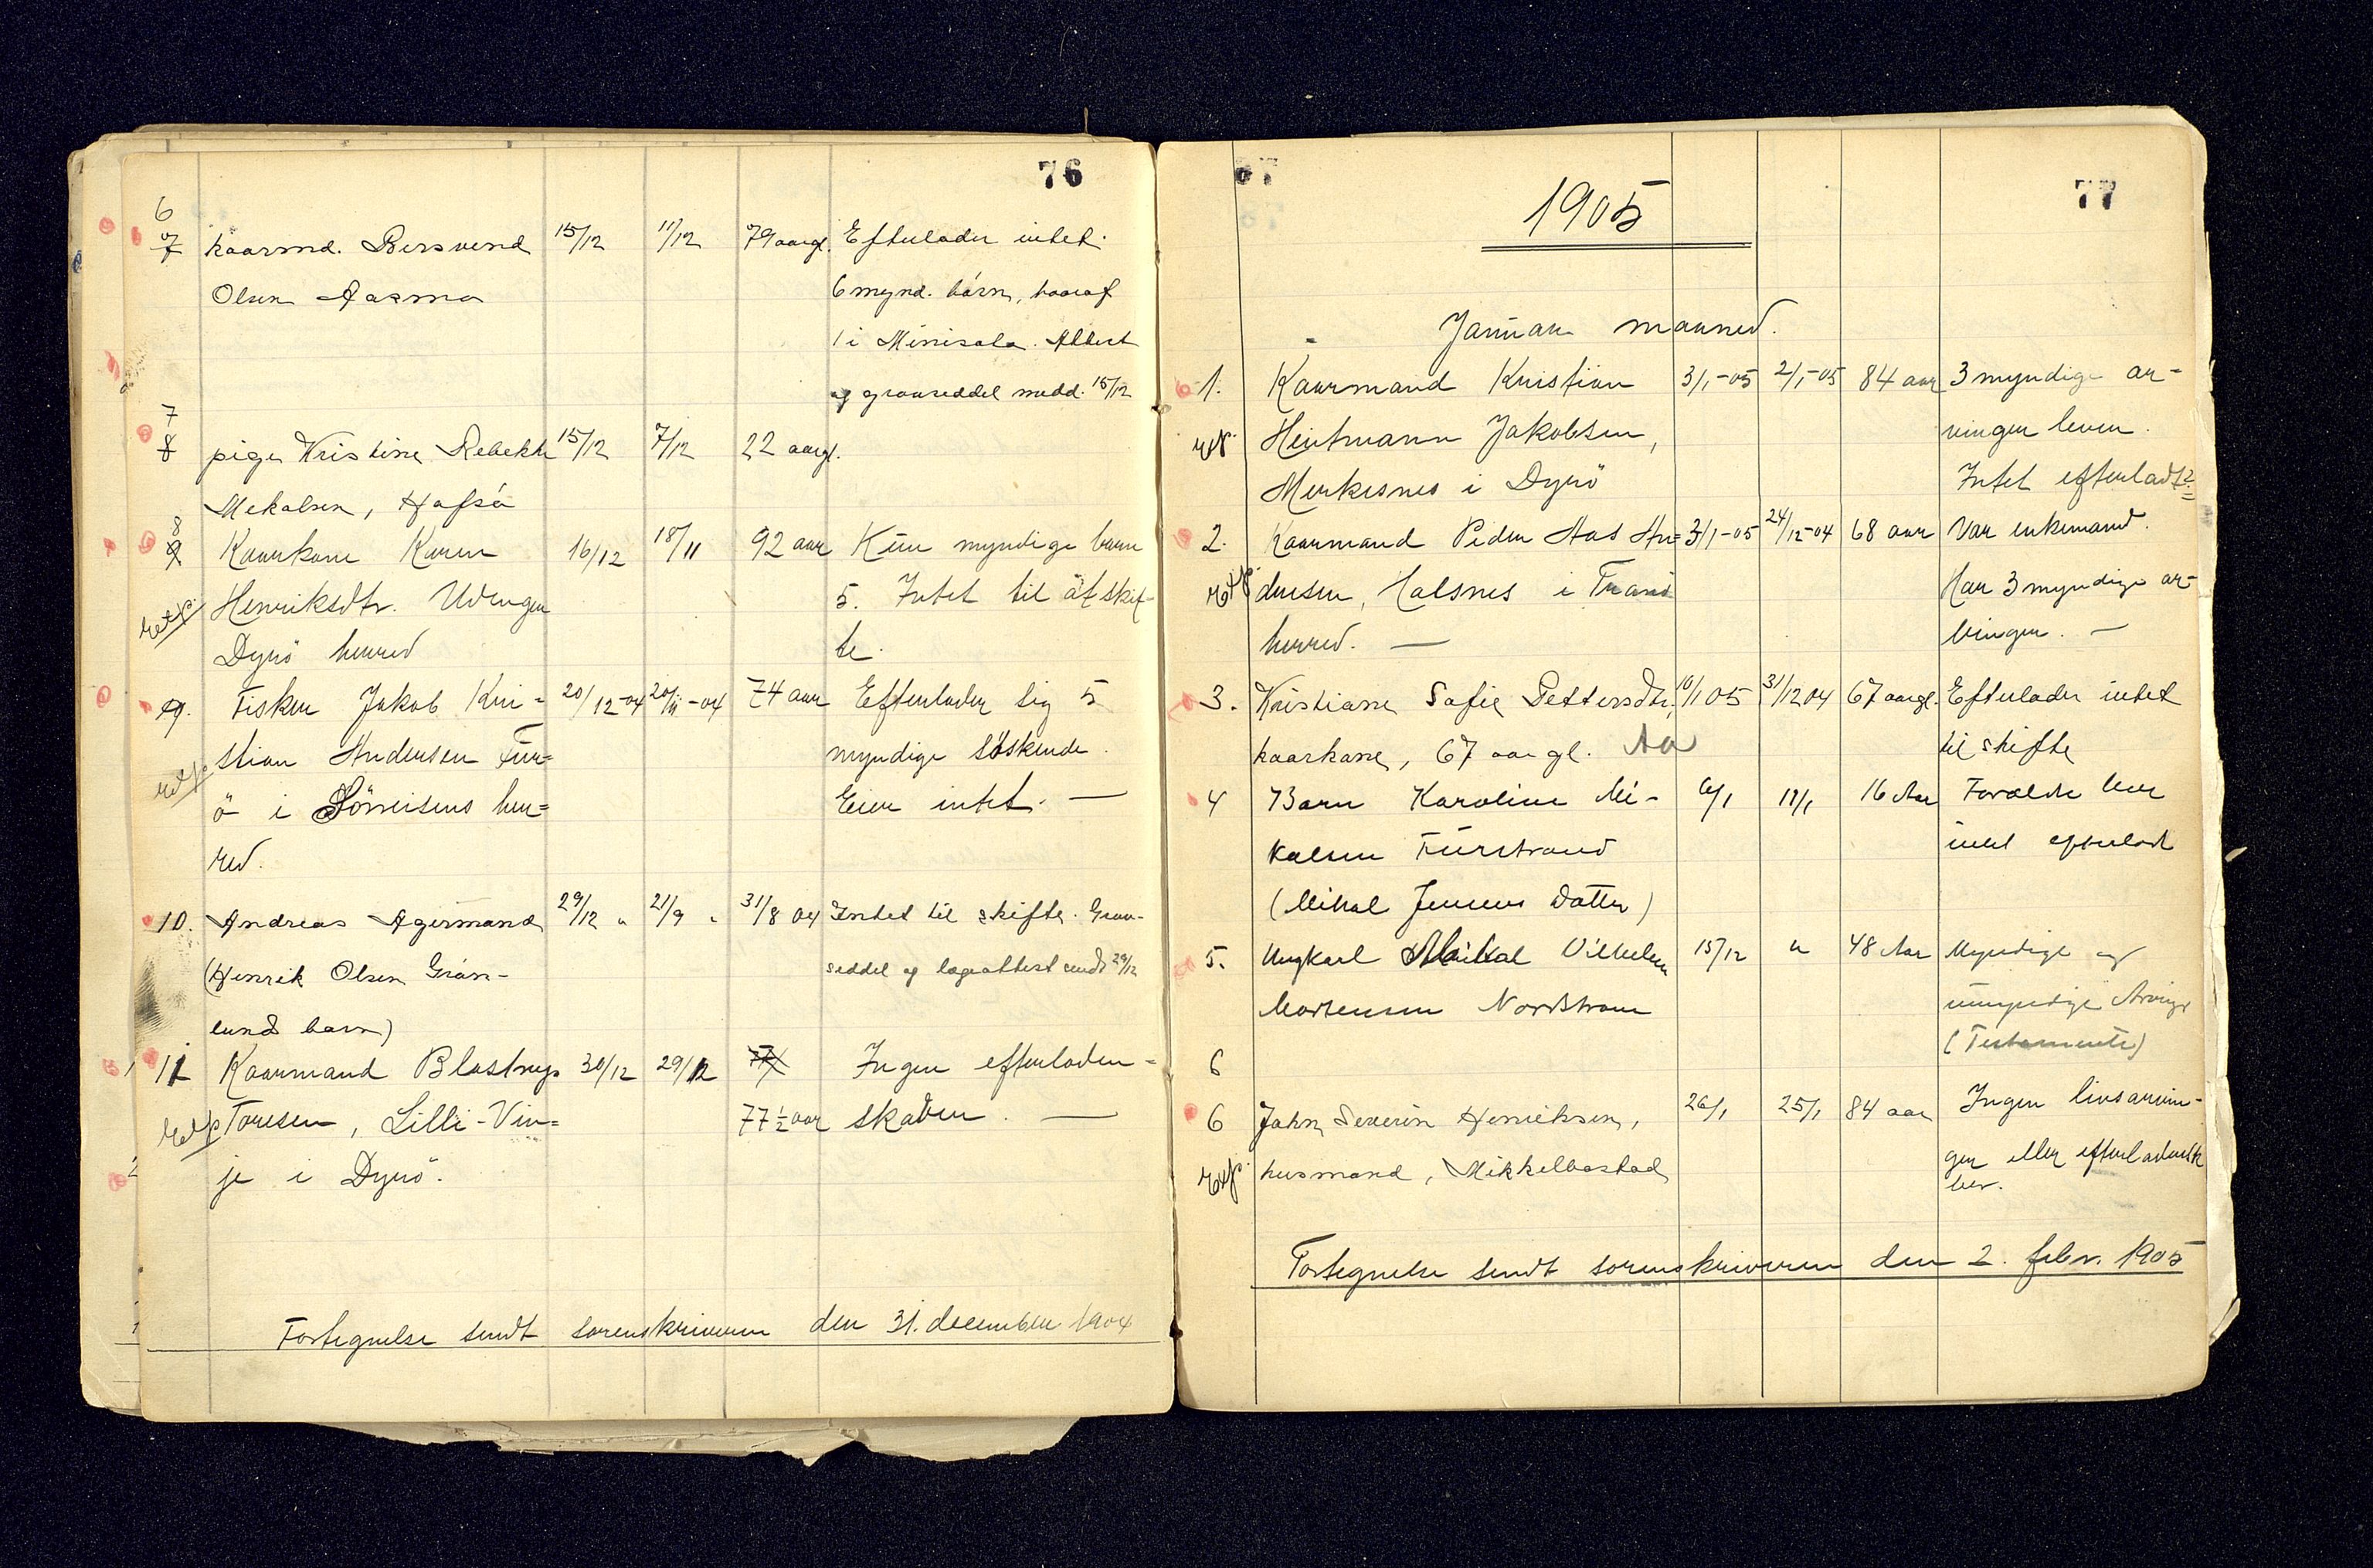 76
6
7 kaarmd. Bersvend 15/12 11/12 79 aargl. Efterlader intet.
Olsen Aasmo 6 mynd. børn, hvoraf
1 i Minisota. Attest
og gravseddel medd. 15/12
7
8 pige Kristine Rebekka 15/12 7/12 22 aargl.
Mekalsen, Hofsö
8
9 Kaarkone Karen 16/12 18/11 92 aar Kun myndige barn
Henriksdtr. 5. Intet til at skif-
Dyrö herred te.
9. Fisker Jakob Kri- 20/12-04 20/11-04 74 aar Efterlader sig 5
stian Andersen Fur= myndige söskende.
ö i Sörreisens her= Eier intet. —
red.
10. Andreas Agermand 29/12 " 21/9 " 31/8 04 Intet til skifte. Grav-
(Henrik Olsen Grøn- seddel og lægeattest sendt 29/12
lunds barn)
11 Kaarmand Blastrup 30/12 29/12 77 Ingen efterladen-
Toresen, Lilli-Vin= 77 1/2 aar skaber. —
je i Dyrö.
Fortegnelse sendt sorenskriveren den 31. december 1904
77
1905
Januar maaned.
1. Kaarmand Kristian 3/1-05 2/1-05 84 aar 3 myndige ar-
Heitmann Jakobsen, vinger lever.
Merkesnes i Dyrö Intet efterladt?
2. Kaarmand Peder Aas An= 3/1-05 24/12-04 68 aar Var enkemand.
dersen, Halsnes i Tranö Har 3 myndige ar-
herred. — vinger. —
3. Kristiane Sofie Pettersdtr. 10/1 05 31/12 04 67 aargl. Efterlader intet
kaarkone, 67 aar gl. Aa til skifte
4 Barn Karoline Mi- 16 Aar Forældre lever
kalsen Furstrand intet efterladt
(Mikal Jensens Datter)
5. Ungkarl Mikal Vilhelm 15/12 " 48 Aar Myndige og
Mortensen Nordstrom umyndige Arvinger
(Testamente)
6
6 John Severin Henriksen, 26/1 25/1 84 aar Ingen livsarvin-
husmand, Mikkelbostad ger eller efterladenska
ber.
Fortegnelse sendt sorenskriveren den 2. febr. 1905